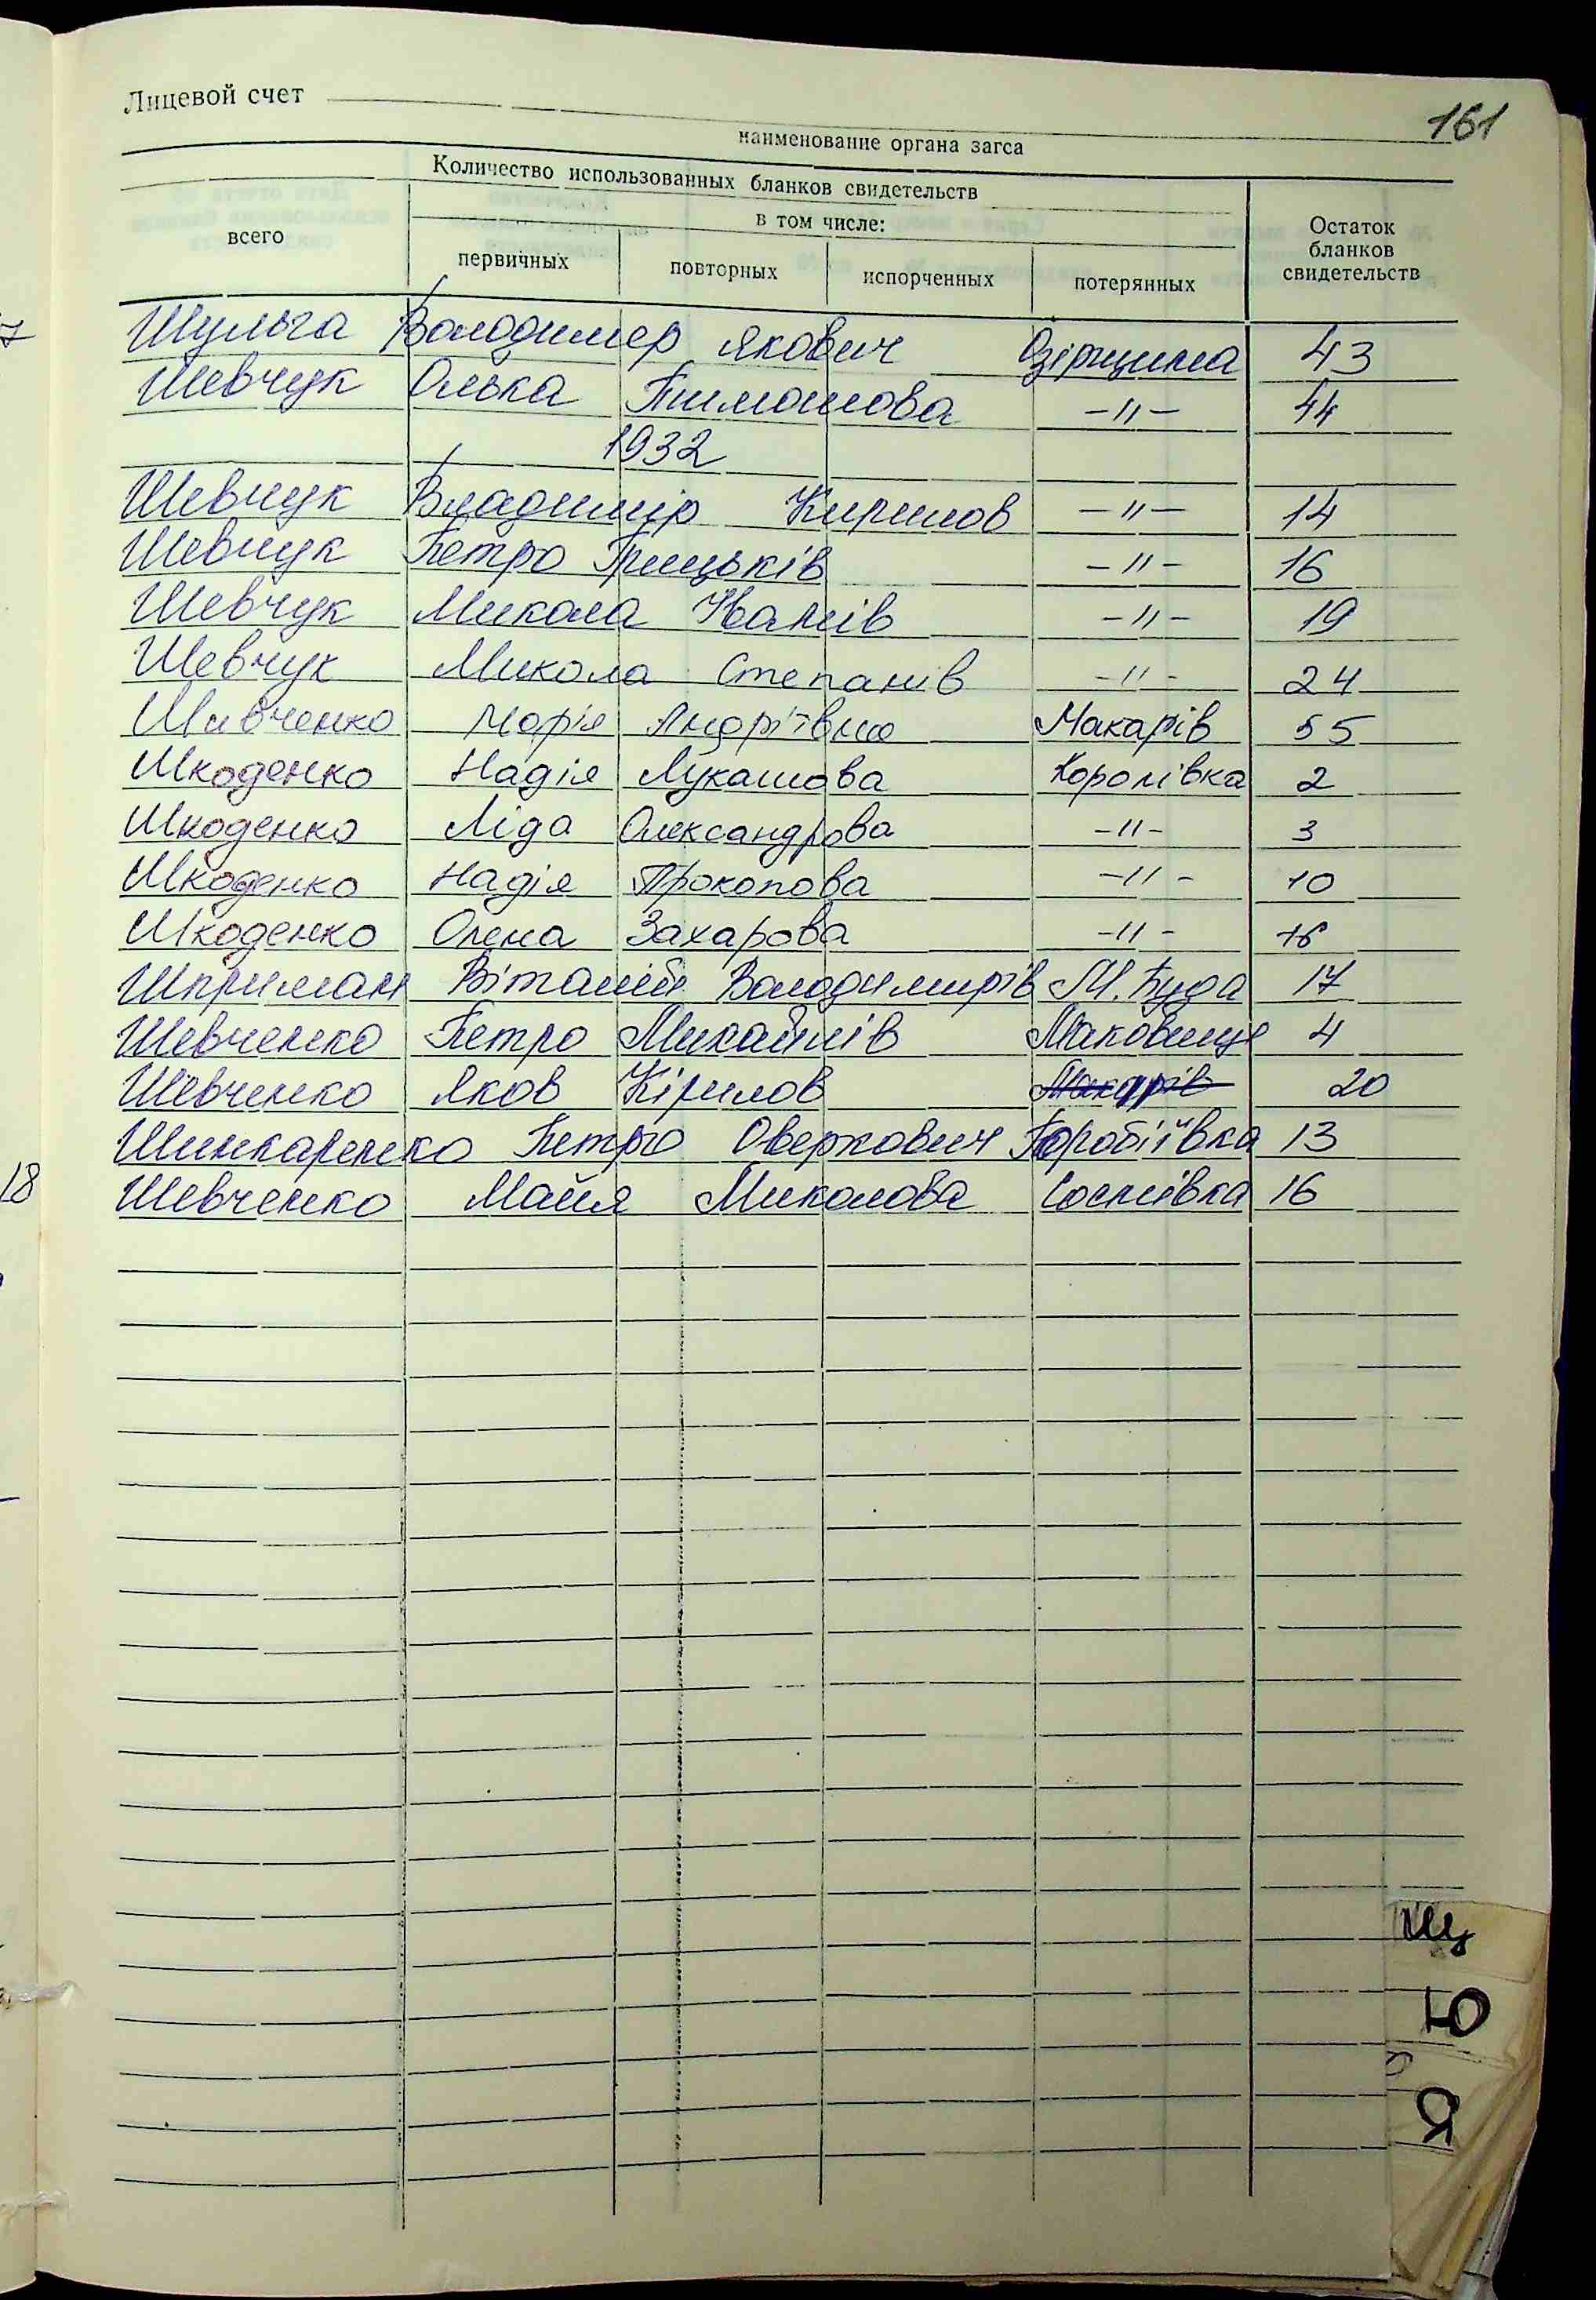 161
Лицевой счет
наименование органа загса
Количество использованных бланков свидетельств
в том числе:
всего
первичных
повторных
испорченных
потерянных
Остаток бланков свидетельств
Шульга Володимер Якович Озірщина 43
Шевчук Олька Тимошова -"- 44
1932
Шевчук Владимір Кирилов -"- 14
Шевчук Петро Грицьків -"- 16
Шевчук Микола Іванів -"- 19
Шевчук Микола Степанів -"- 24
Шевченко Марія Андріївна Макарів 55
Шкоденко Надія Лукашова Королівка 2
Шкоденко Ліда Олександрова -"- 3
Шкоденко Надія Прокопова -"- 10
Шкоденко Олена Захарова -"- 16
Шприман Віталій Володимирів М. Буда 17
Шевченко Петро Михайлів Маковище 4
Шевченко Яков Кірилов Макарів 20
Шинкаренко Петро Оверкович Горобіївка 13
Шевченко Майя Миколова Соснівка 16
18
Щ
Ю
Я